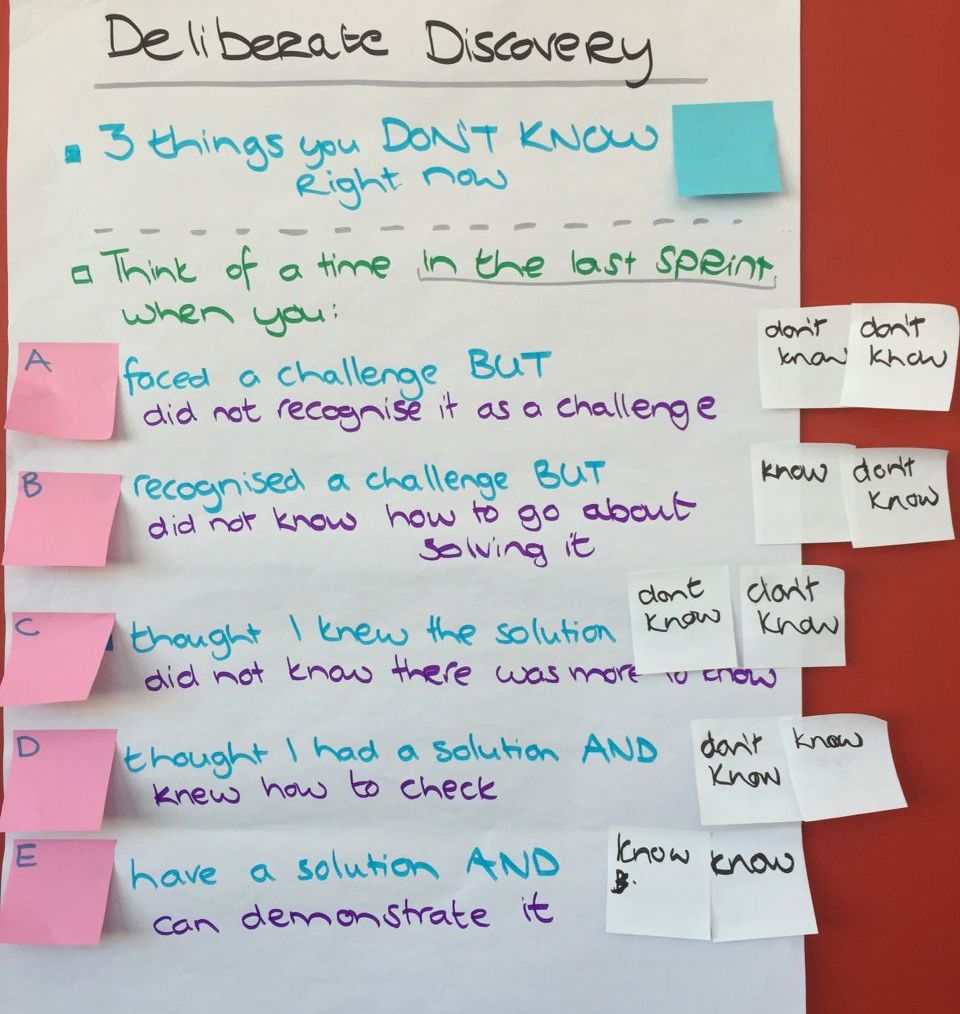 Deliberate Discovery
3 things you DON'T KNOW
Right now
Think of a time in the last sprint
when you:
A
faced a challenge BUT
did not recognise it as a challenge
don't
know
don't
know
B
recognised a challenge BUT
did not know how to go about
solving it
know
don't
know
C
thought I knew the solution
did not know there was more to know
dont
know
don't
know
D
thought I had a solution AND
knew how to check
don't
know
know
E
have a solution AND
can demonstrate it
know
know